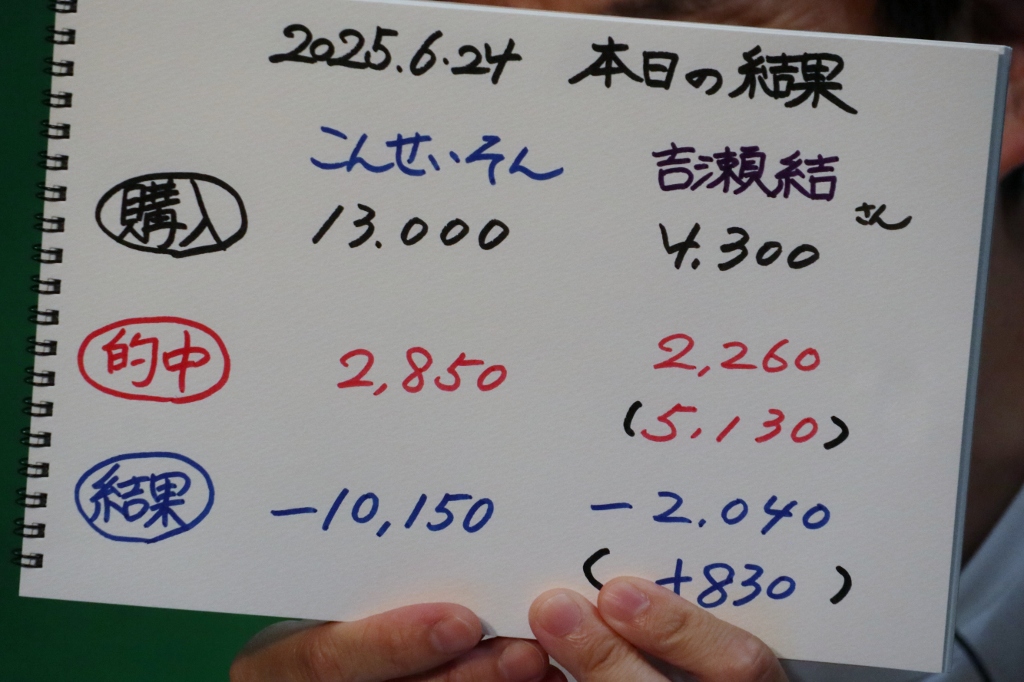 2025.6.24 本日の結果
こんせいそん 吉瀬結さん
購入 13.000 4.300
的中 2,850 2,260
(5.130)
結果 -10,150 -2.040
(+830)